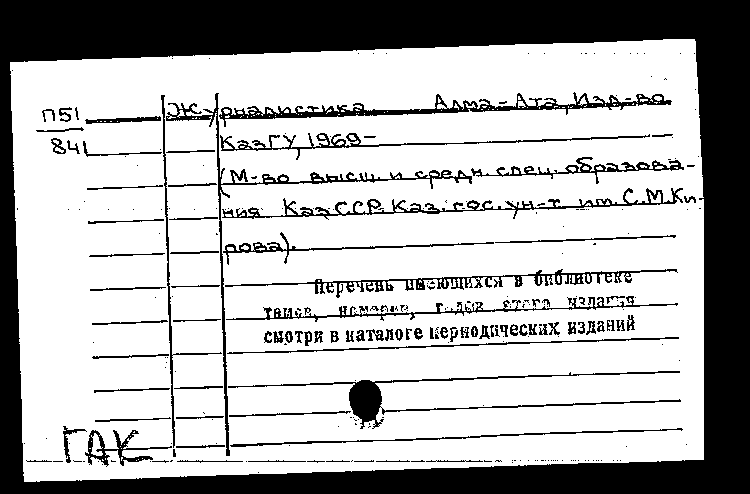 П51
841
Журналистика. Алма-Ата, Изд-во
КазГУ, 1969-
(М-во высш. и средн. спец. образова-
ния КазССР. Каз. гос. ун-т. им. С.М.Ки-
рова).
Перечень имеющихся в библиотеке
томов, номеров, годов этого издания
смотри в каталоге периодических изданий
ГАК